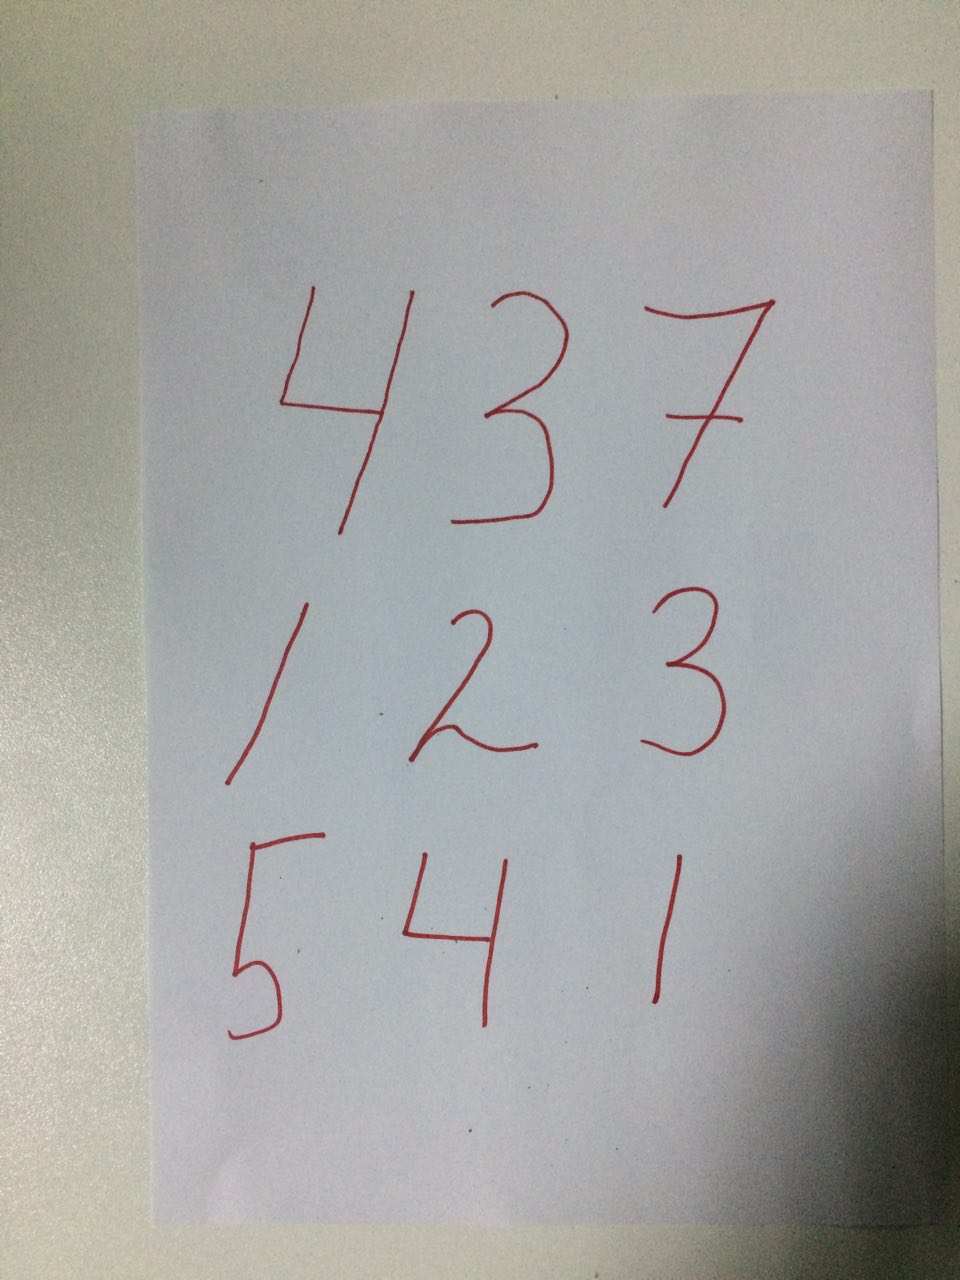 4 3 7
1 2 3
5 4 1